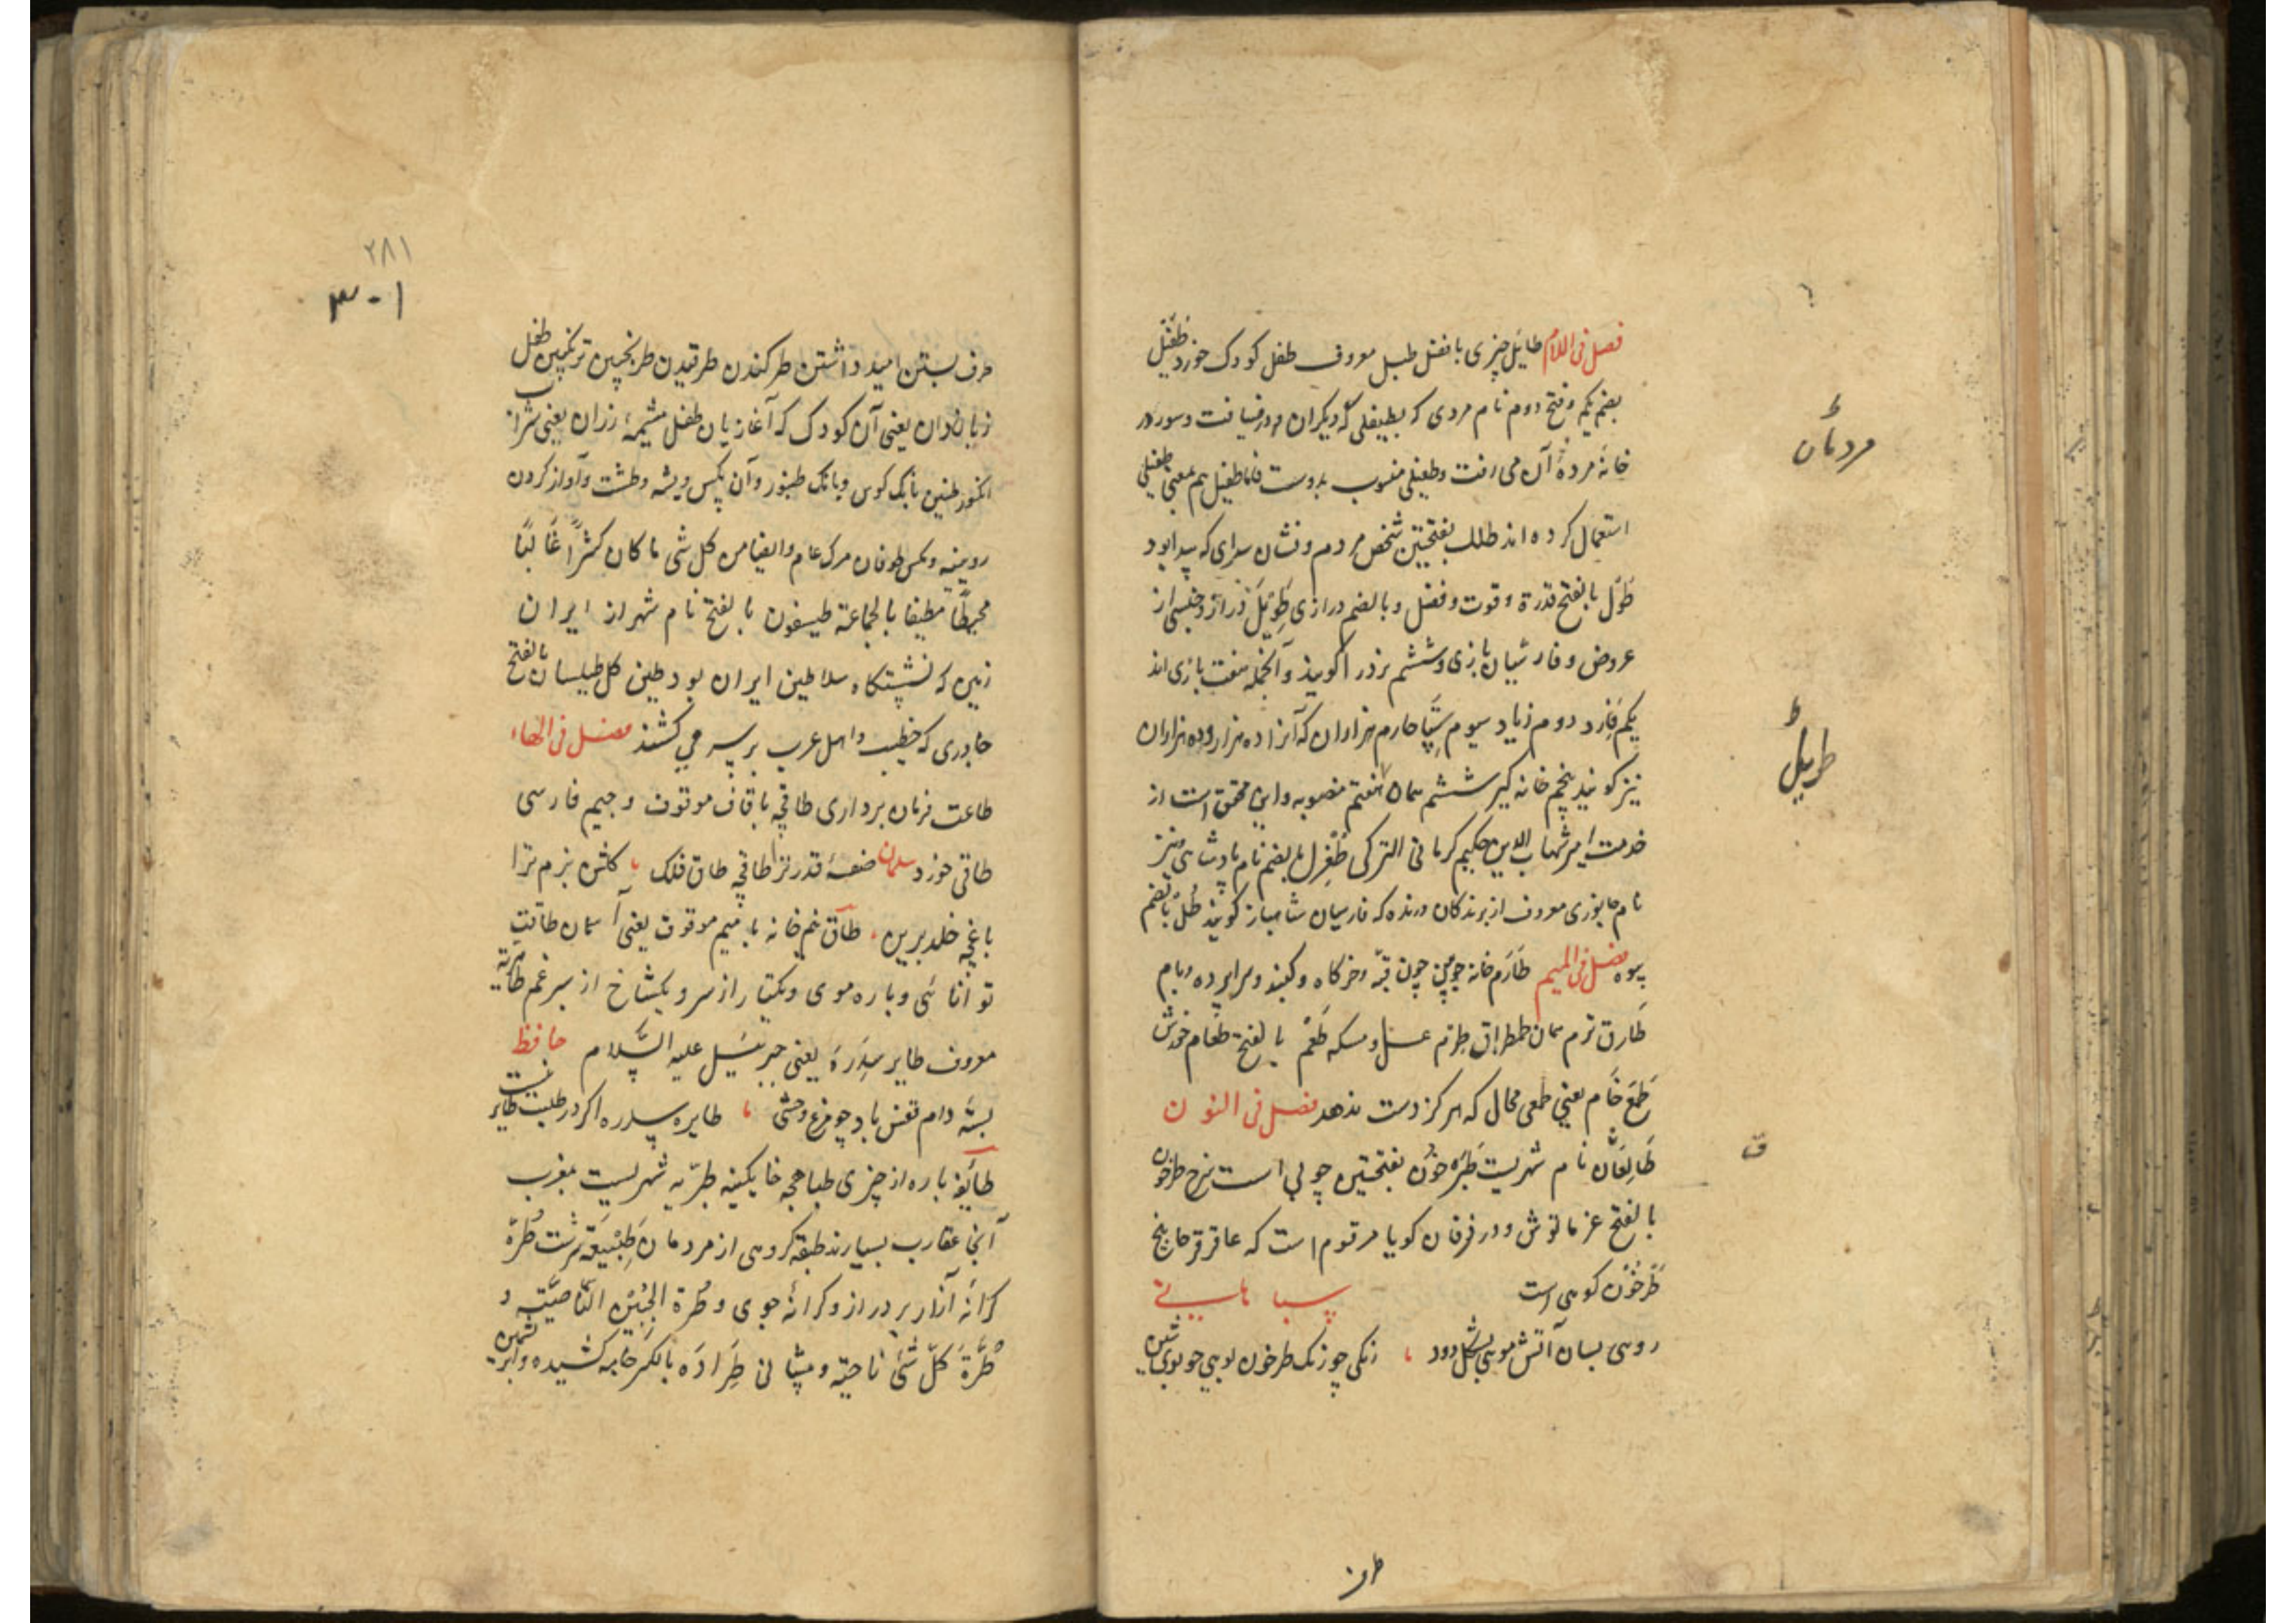 فصل فی اللام طایل چیزی با فضل طبل معروف طفل کودک خورد طفیل
بضم یکم و فتح دوم نام مردی که بطفیلی دیکران در ضیافت و سور در
خانهٔ مردم آن می رفت و طفیلی منسوب بدوست فاما طفیل هم بمعنی طفیلی
استعمال کرده اند طلل بفتحتین شخص مردم و نشان سرای که پیدا بود
طَول بالفتح قدرة و قوت و فضل و بالضم درازی طَوِیل دراز و جنسی از
عروض و فارسیان بازی ششم نرد را کویند و آنجمله هفت بازی اند
یکم فارد دوم زیاد سیوم ستا چارم هزاران که آنرا ده هزار و ده هزاران
نیز کویند پنجم خانه کیر ششم هفتم منصوبه و این محقق است از
خدمت امیر شهاب الدین حکیم کرمانی الترکی طُغرِل بالضم نام پادشاهی و نیز
نام جانوری معروف از پرندکان درنده که فارسیان شاهباز کویند طُلْ بالضم
میوه فصل فی المیم طارَم خانه چوبین چون قبه و خرکاه و کنبد و سراپرده و بام
طارق ترم طمطراق طرم عسل و مسکه طَعْم بالفتح طعام خورش
طَمَع خام یعنی طمعی محال که هرکز دست ندهد فصل فی النون
طالقان نام شهریست طَبَرخون بفتحتین چوبی است سرخ طرخون
بالفتح و در فرقان کویا مرقوم است که عاقرقرحا بیخ
طَرخُون کوهی است
روی بسان آتش موی بشکل دود رنکی چو رنک طرخون بویی چو بوی
طرف
مردمان
طویل
ق
۲۸۱
۳۰۱
طرف بستن امید داشتن طرکندن طرقیدن طرنجبین ترنکبین طفل
زباندان یعنی آن کودک که آغاز زبان طفل مشیمهٔ رزان یعنی شراب
انکور طنین بانک کوس و بانک طنبور و آن مکس و پشه و طشت و آواز کردن
رویینه و مکس طوفان مرک عام و ایضا من کل شی ما کان کثیرًا غالبًا
محیطًا مطیفا بالجماعة طیسفون بالفتح نام شهر از ایران
زمین که نشستکاه سلاطین ایران بود طین کل طیلسان بالفتح
چادری که خطیب و اهل عرب بر سر می کشند فصل فی الهاء
طاعت فرمان برداری طاقچه با قاف موقوف و جیم فارسی
طاقی خورد سلمان صفهٔ قدر ترا طاقچه طاق فلک کلشن بزم ترا
باغچه خلد برین طاق نیم خانه با میم موقوف یعنی آسمان طاقت
توانائی و یاره موی و یکتا راز سر و یکشاخ از سپرغم
معروف طایر سِدره یعنی جبرئیل علیه السلام حافظ
بسته دام قفس باد چو مرغ وحشی طایر سدره اکر در طلبت طایر نیست
طایفه پاره از چیزی طباهجه خایکینه طبریه شهریست بمغرب
آنجا عقارب بسیارند طبقه کروهی از مردمان طَبِیعَة سرشت طُرَّة
کرانه آزار پر دراز و کرانهٔ جوی و طُرة الجبین الناصیة و
طُرَّة کلّ شئ ناحیته و پیشانی طَرادَه بالکسر جامه کشیده و ابریشمین